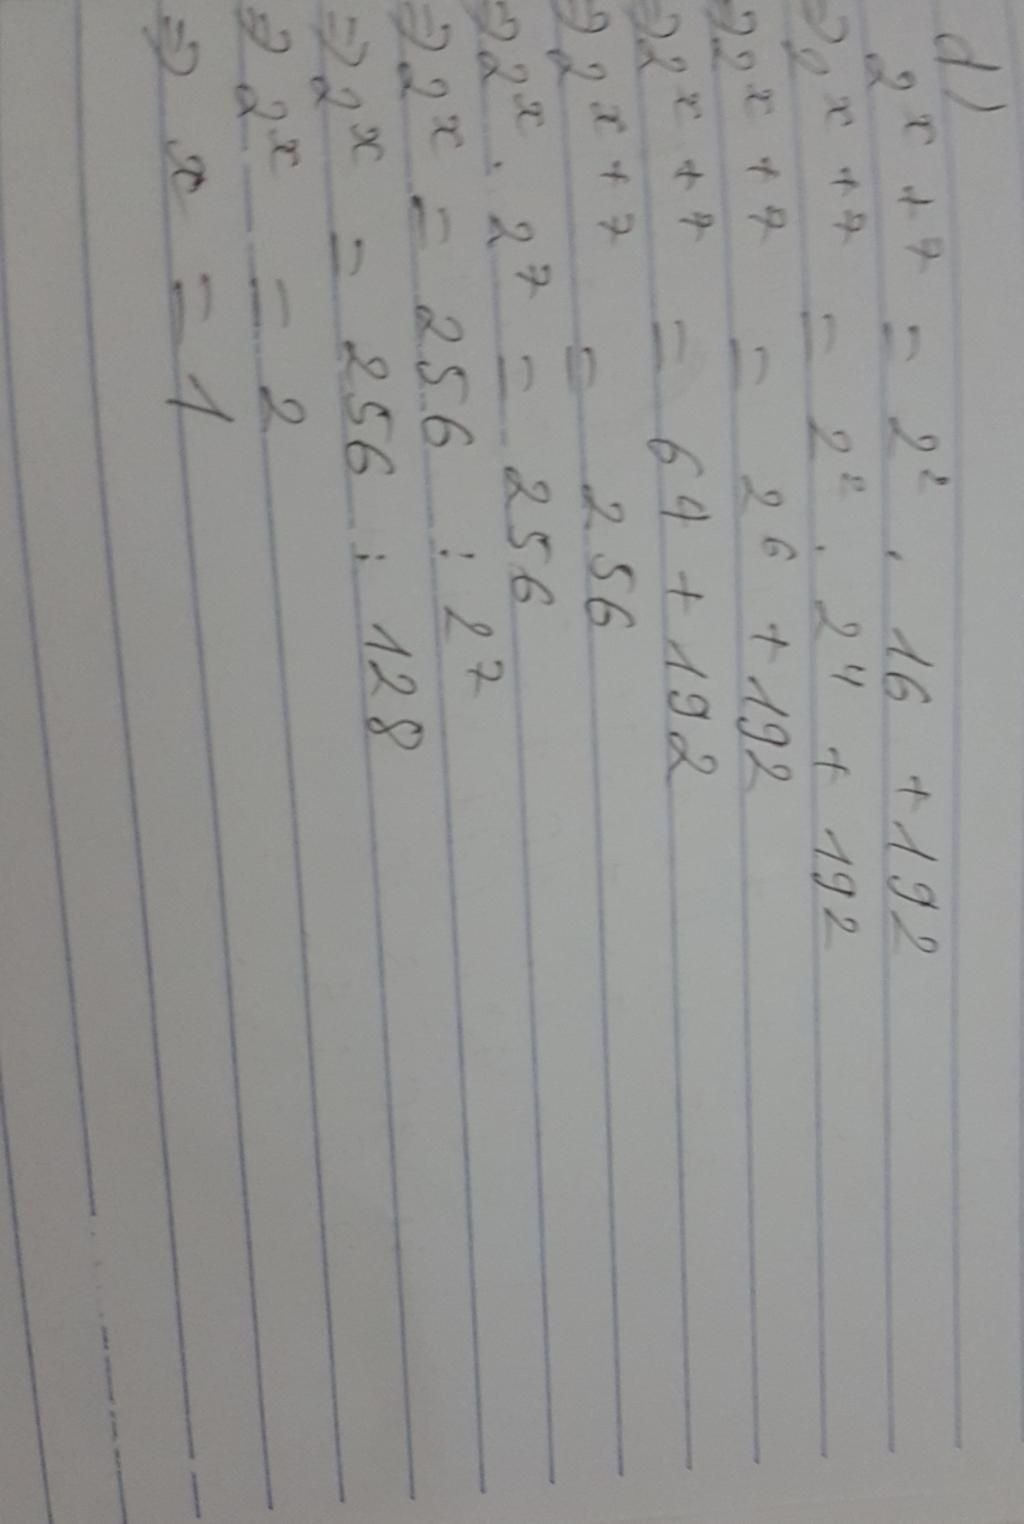 d)
2ˣ⁺⁷ = 2² . 16 + 192
⇒ 2ˣ⁺⁷ = 2² . 2⁴ + 192
⇒ 2ˣ⁺⁷ = 2⁶ + 192
⇒ 2ˣ⁺⁷ = 64 + 192
⇒ 2ˣ⁺⁷ = 256
⇒ 2ˣ . 2⁷ = 256
⇒ 2ˣ = 256 : 2⁷
⇒ 2ˣ = 256 : 128
⇒ 2ˣ = 2
⇒ x = 1